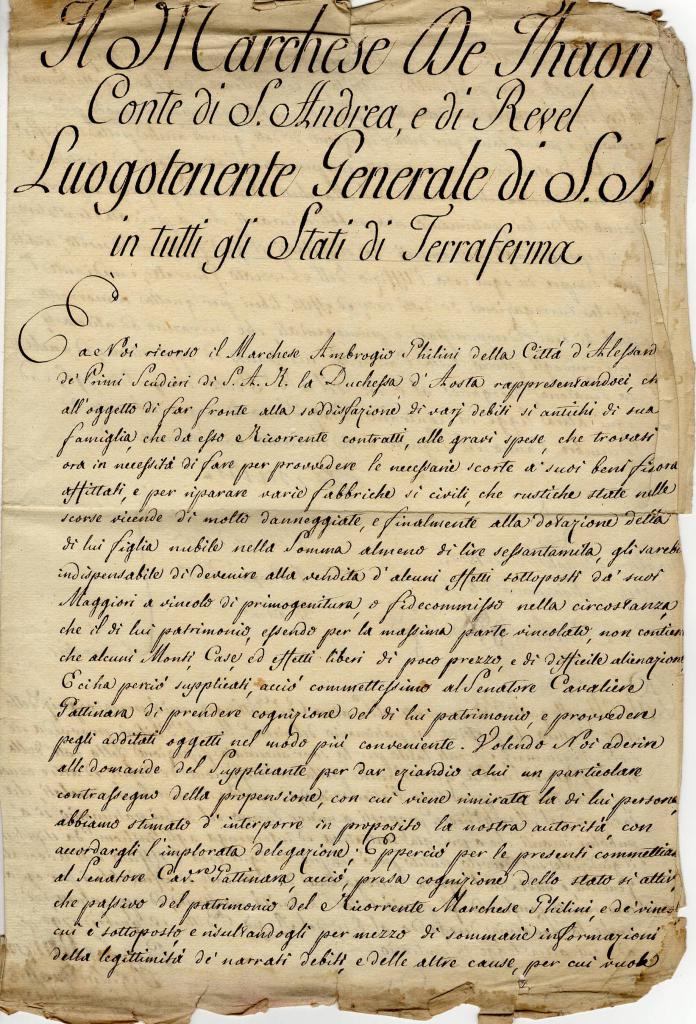 Il Marchese De Thaon
Conte di S. Andrea, e di Revel
Luogotenente Generale di S.
in tutti gli Stati di Terraferma
È a Noi ricorso il Marchese Ambrogio Philini della Città d'Alessand
de' Primi Scudieri di S. A. R. la Duchessa d'Aosta rappresentandoci, ch
all'oggetto di far fronte alla soddisfazione di varj debiti si antichi di sua
famiglia, che da esso Ricorrente contratti, alle gravi spese, che trovasi
ora in necessità di fare per provvedere le necessarie scorte a' suoi beni finora
affittati, e per riparare varie fabbriche si civili, che rustiche state nelle
scorse vicende di molto danneggiate, e finalmente alla dotazione della
di lui figlia nubile nella Somma almeno di lire sessantamila, gli sarebb
indispensabile di devenire alla vendita d'alcuni effetti sottoposti da' suoi
Maggiori a vincolo di primogenitura, o fidecommisso nella circostanza,
che il di lui patrimonio, essendo per la massima parte vincolato, non contiene
che alcuni Monti, Case, ed effetti liberi di poco prezzo, e di difficile alienazione
E ci ha perciò supplicati, acciò commettessimo al Senatore Cavaliere
Gattinara di prendere cognizione del di lui patrimonio, e provvedere
pegli additati oggetti nel modo più conveniente. Volendo Noi aderire
alle domande del Supplicante per dar eziandio a lui un particolare
contrassegno della propensione, con cui viene rimirata la di lui persona,
abbiamo stimato d'interporre in proposito la nostra autorità, con
accordargli l'implorata delegazione; Epperciò per le presenti commettia
al Senatore Cav.re Gattinara, acciò, presa cognizione dello stato si attiv
che passivo del patrimonio del Ricorrente Marchese Philini, e de' vinc
cui è sottoposto e risultandogli per mezzo di sommarie informazioni
della legittimità de' narrati debiti, e delle altre cause, per cui vuole